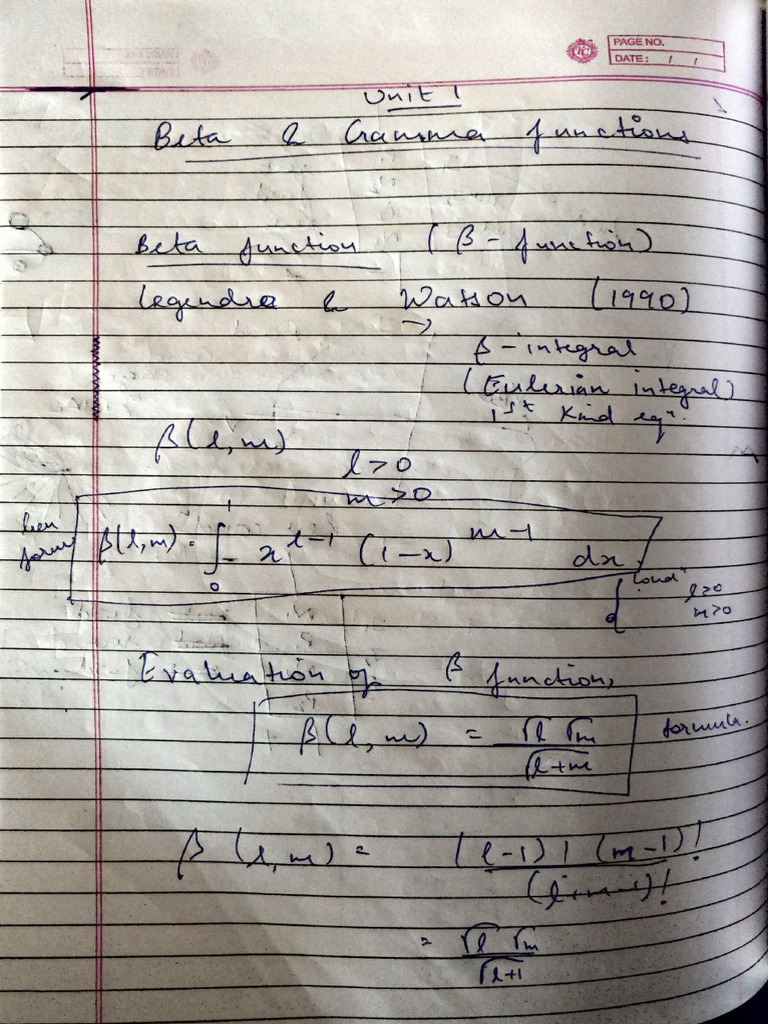 PAGE NO.
DATE: / /
Unit 1
Beta & Gamma functions
Beta function (β - function)
Legendre & Watson (1990)
→ β - integral
(Eulerian integral)
1st kind eqn.
β(l, m)
l > 0
m > 0
β(l, m) = ∫₀¹ x^{l-1} (1-x)^{m-1} dx
form
cond"
l>0
m>0
Evaluation of β function,
β(l, m) = √l √m / √l+m formula.
β (l, m) = (l-1)! (m-1)! / (l+m-1)!
= √l √m / √l+1